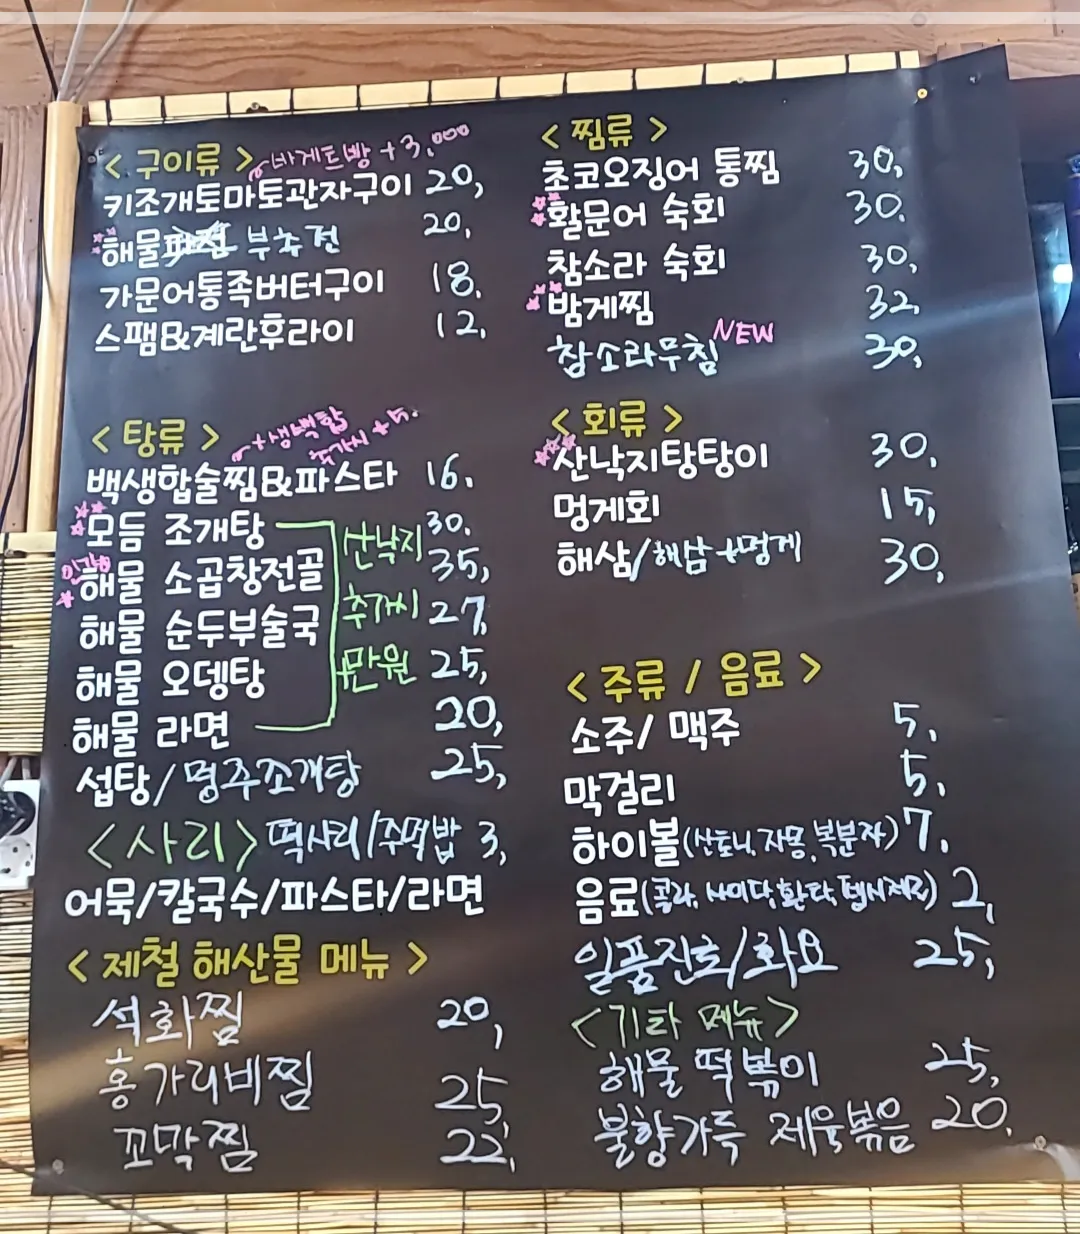 < 구이류 > 바게트빵 +3,000
키조개토마토관자구이 20,
해물파전 부추전 20,
가문어통족버터구이 18,
스팸&계란후라이 12,
< 탕류 > +생백합 추가시 +5.
백생합술찜&파스타 16,
모듬 조개탕 30.
해물 소곱창전골 35,
해물 순두부술국 27,
해물 오뎅탕 25,
해물 라면 20,
산낙지
추가시
+만원
섭탕/명주조개탕 25,
<사리> 떡사리/주먹밥 3,
어묵/칼국수/파스타/라면
< 제철 해산물 메뉴 >
석화찜 20,
홍가리비찜 25,
꼬막찜 22,
< 찜류 >
초코오징어 통찜 30,
활문어 숙회 30.
참소라 숙회 30,
밤게찜 32,
참소라무침 NEW 30,
< 회류 >
산낙지탕탕이 30,
멍게회 15,
해삼/해삼+멍게 30,
< 주류 / 음료 >
소주/ 맥주 5,
막걸리 5,
하이볼(산토니,자몽,복분자) 7,
음료(콜라,사이다,환타,펩시제로) 2,
일품진로/화요 25,
<기타 메뉴>
해물 떡볶이 25,
불향가득 제육볶음 20,